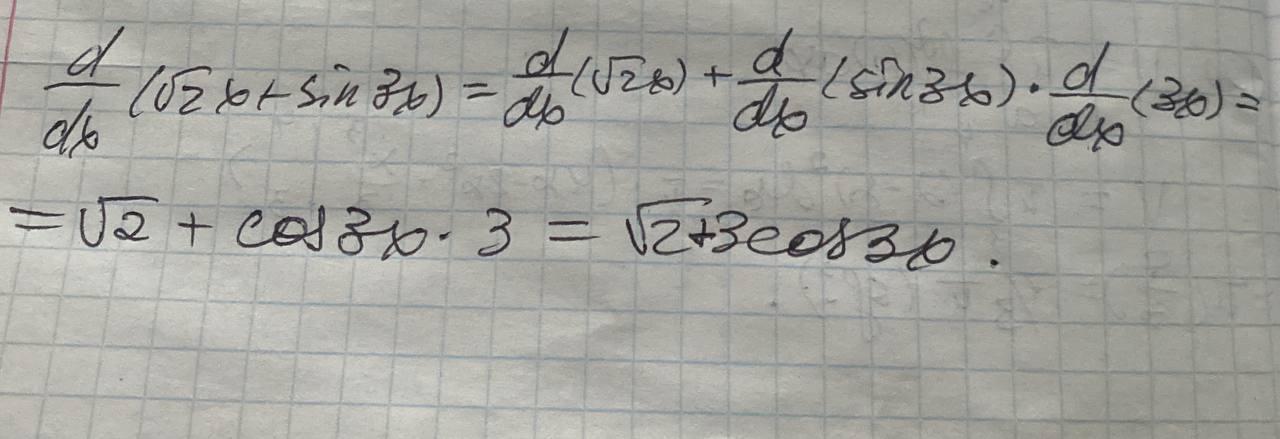 d/dx (√2x + sin 3x) = d/dx (√2x) + d/dx (sin 3x) · d/dx (3x) =
= √2 + cos 3x · 3 = √2 + 3cos 3x .